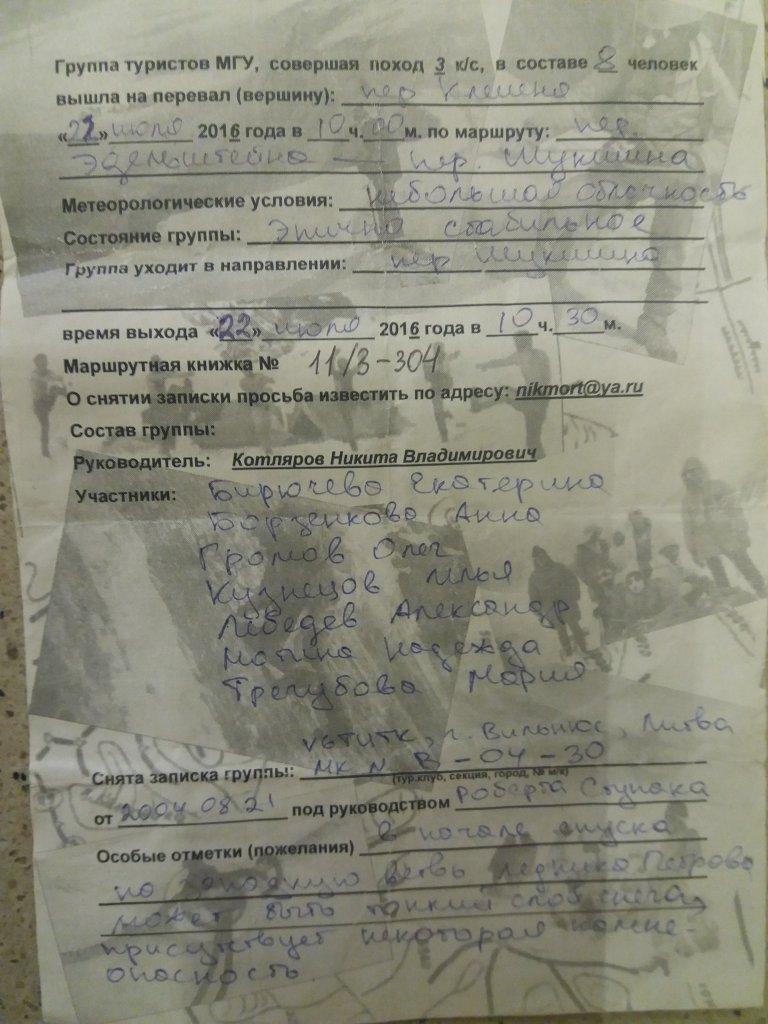 Группа туристов МГУ, совершая поход 3 к/с, в составе 8 человек
вышла на перевал (вершину): пер Клешеня
«22» июля 2016 года в 10 ч. 00 м. по маршруту: пер.
Эдельштейна — пер. Шукшина
Метеорологические условия: небольшая облачность
Состояние группы: Эпично стабильное
Группа уходит в направлении: пер Шукшина
время выхода «22» июля 2016 года в 10 ч. 30 м.
Маршрутная книжка № 11/3-304
О снятии записки просьба известить по адресу: nikmort@ya.ru
Состав группы:
Руководитель: Котляров Никита Владимирович
Участники: Бирючева Екатерина
Борзенкова Анна
Громов Олег
Кузнецов Илья
Лебедев Александр
Надежда
Трегубова Мария
г. Вильнюс, Литва
Снята записка группы: МК № В-04-30
(тур.клуб, секция, город, № м/к)
от 2004 08 21 под руководством Роберта Ступака
Особые отметки (пожелания) в начале спуска
на западную ветвь ледника Петрова
может быть тонкий слой снега,
присутствует некоторая камне-
опасность.